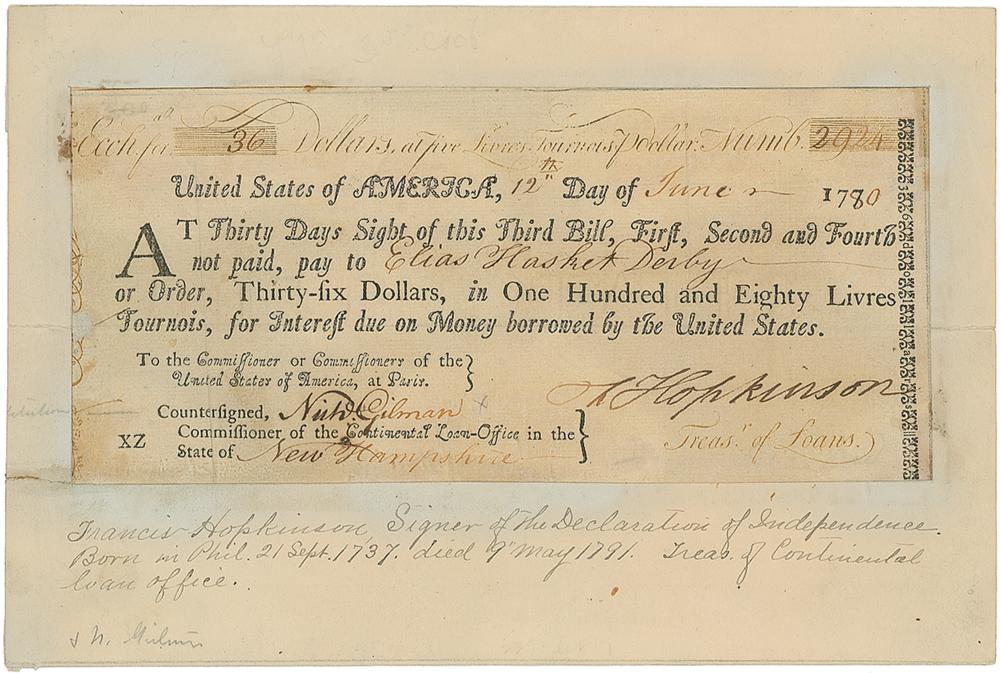 Exch.ª for 36 Dollars, at five Livres Tournois ⅌ Dollar. Numb. 2924
United States of AMERICA, 12th Day of June 1780
AT Thirty Days Sight of this Third Bill, Firſt, Second and Fourth
not paid, pay to Elias Hasket Derby
or Order, Thirty-six Dollars, in One Hundred and Eighty Livres
Tournois, for Intereſt due on Money borrowed by the United States.
To the Commiſſioner or Commiſſioners of the
United States of America, at Paris.
F Hopkinson
Treasr. of Loans.
Countersigned, Nichs. Gilman
XZ
Commiſſioner of the Continental Loan-Office in the
State of New Hampshire
Francis Hopkinson, Signer of the Declaration of Independence
Born in Phil. 21 Sept. 1737. died 9" May 1791. Treas. of Continental
loan office.
& N. Gilman